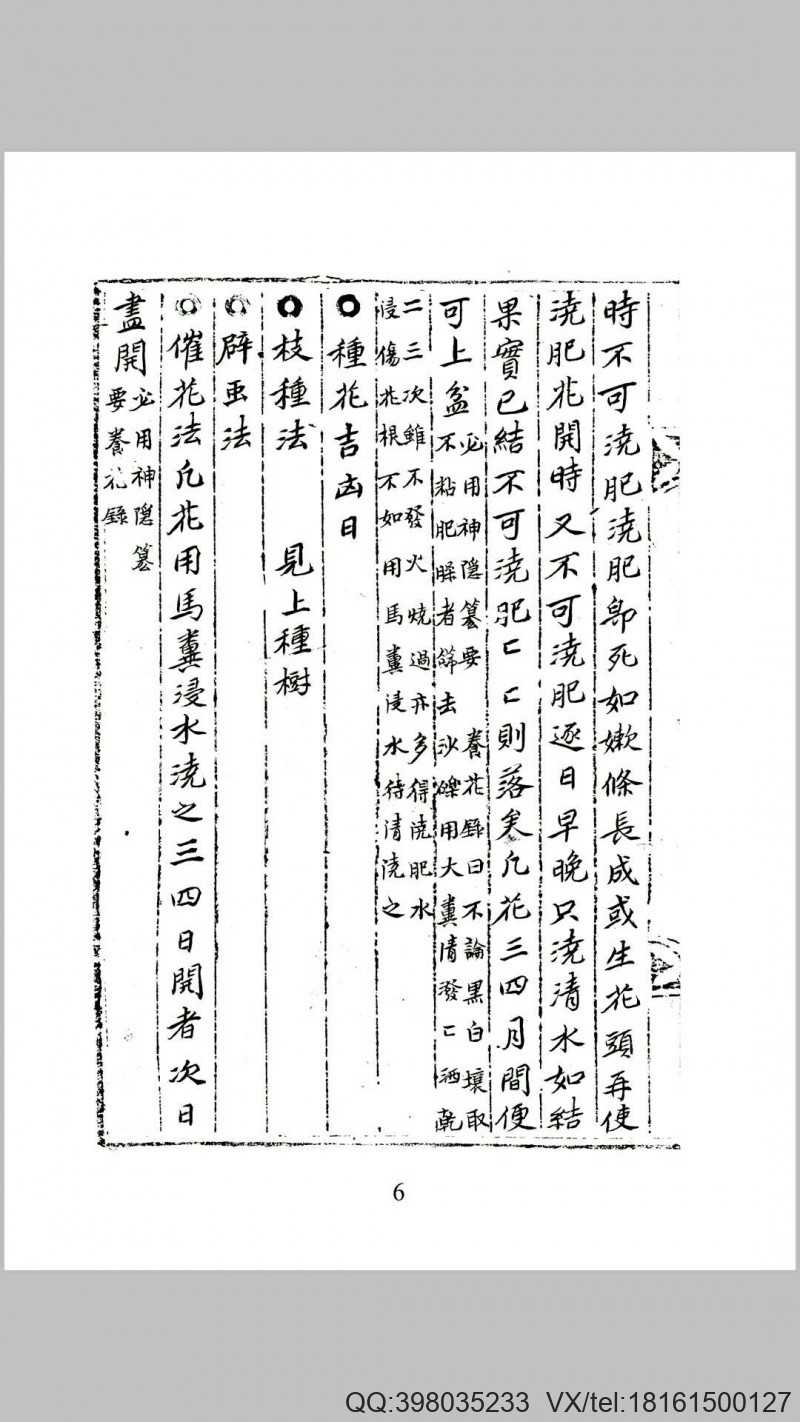 時不可澆肥澆肥即死如嫩條長成或生花頭再使
澆肥花開時又不可澆肥逐日早晚只澆清水如結
果實已結不可澆肥〻〻則落矣凢花三四月間便
可上盆
必用神隠纂要 養花錄曰不論黒白壤取
不粘肥臊者篩去沙礫用大糞清潑〻洒乾
二三次雖不發火燒過亦多得澆肥水
浸傷花根不如用馬糞浸水待清澆之
種花吉凶日
枝種法 見上種樹
辟虫法
催花法凢花用馬糞浸水澆之三四日開者次日
盡開
必用神隠纂
要養花錄
6
QQ:398035233 VX/tel:18161500127